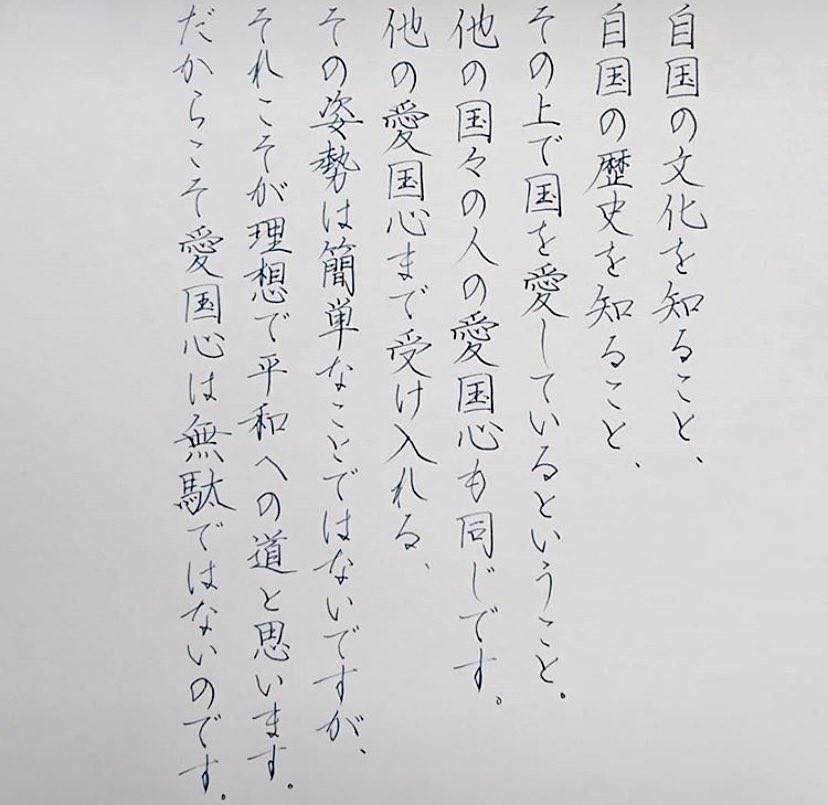 自国の文化を知ること、
自国の歴史を知ること、
その上で国を愛しているということ。
他の国々の人の愛国心も同じです。
他の愛国心まで受け入れる、
その姿勢は簡単なことではないですが、
それこそが理想で平和への道と思います。
だからこそ愛国心は無駄ではないのです。